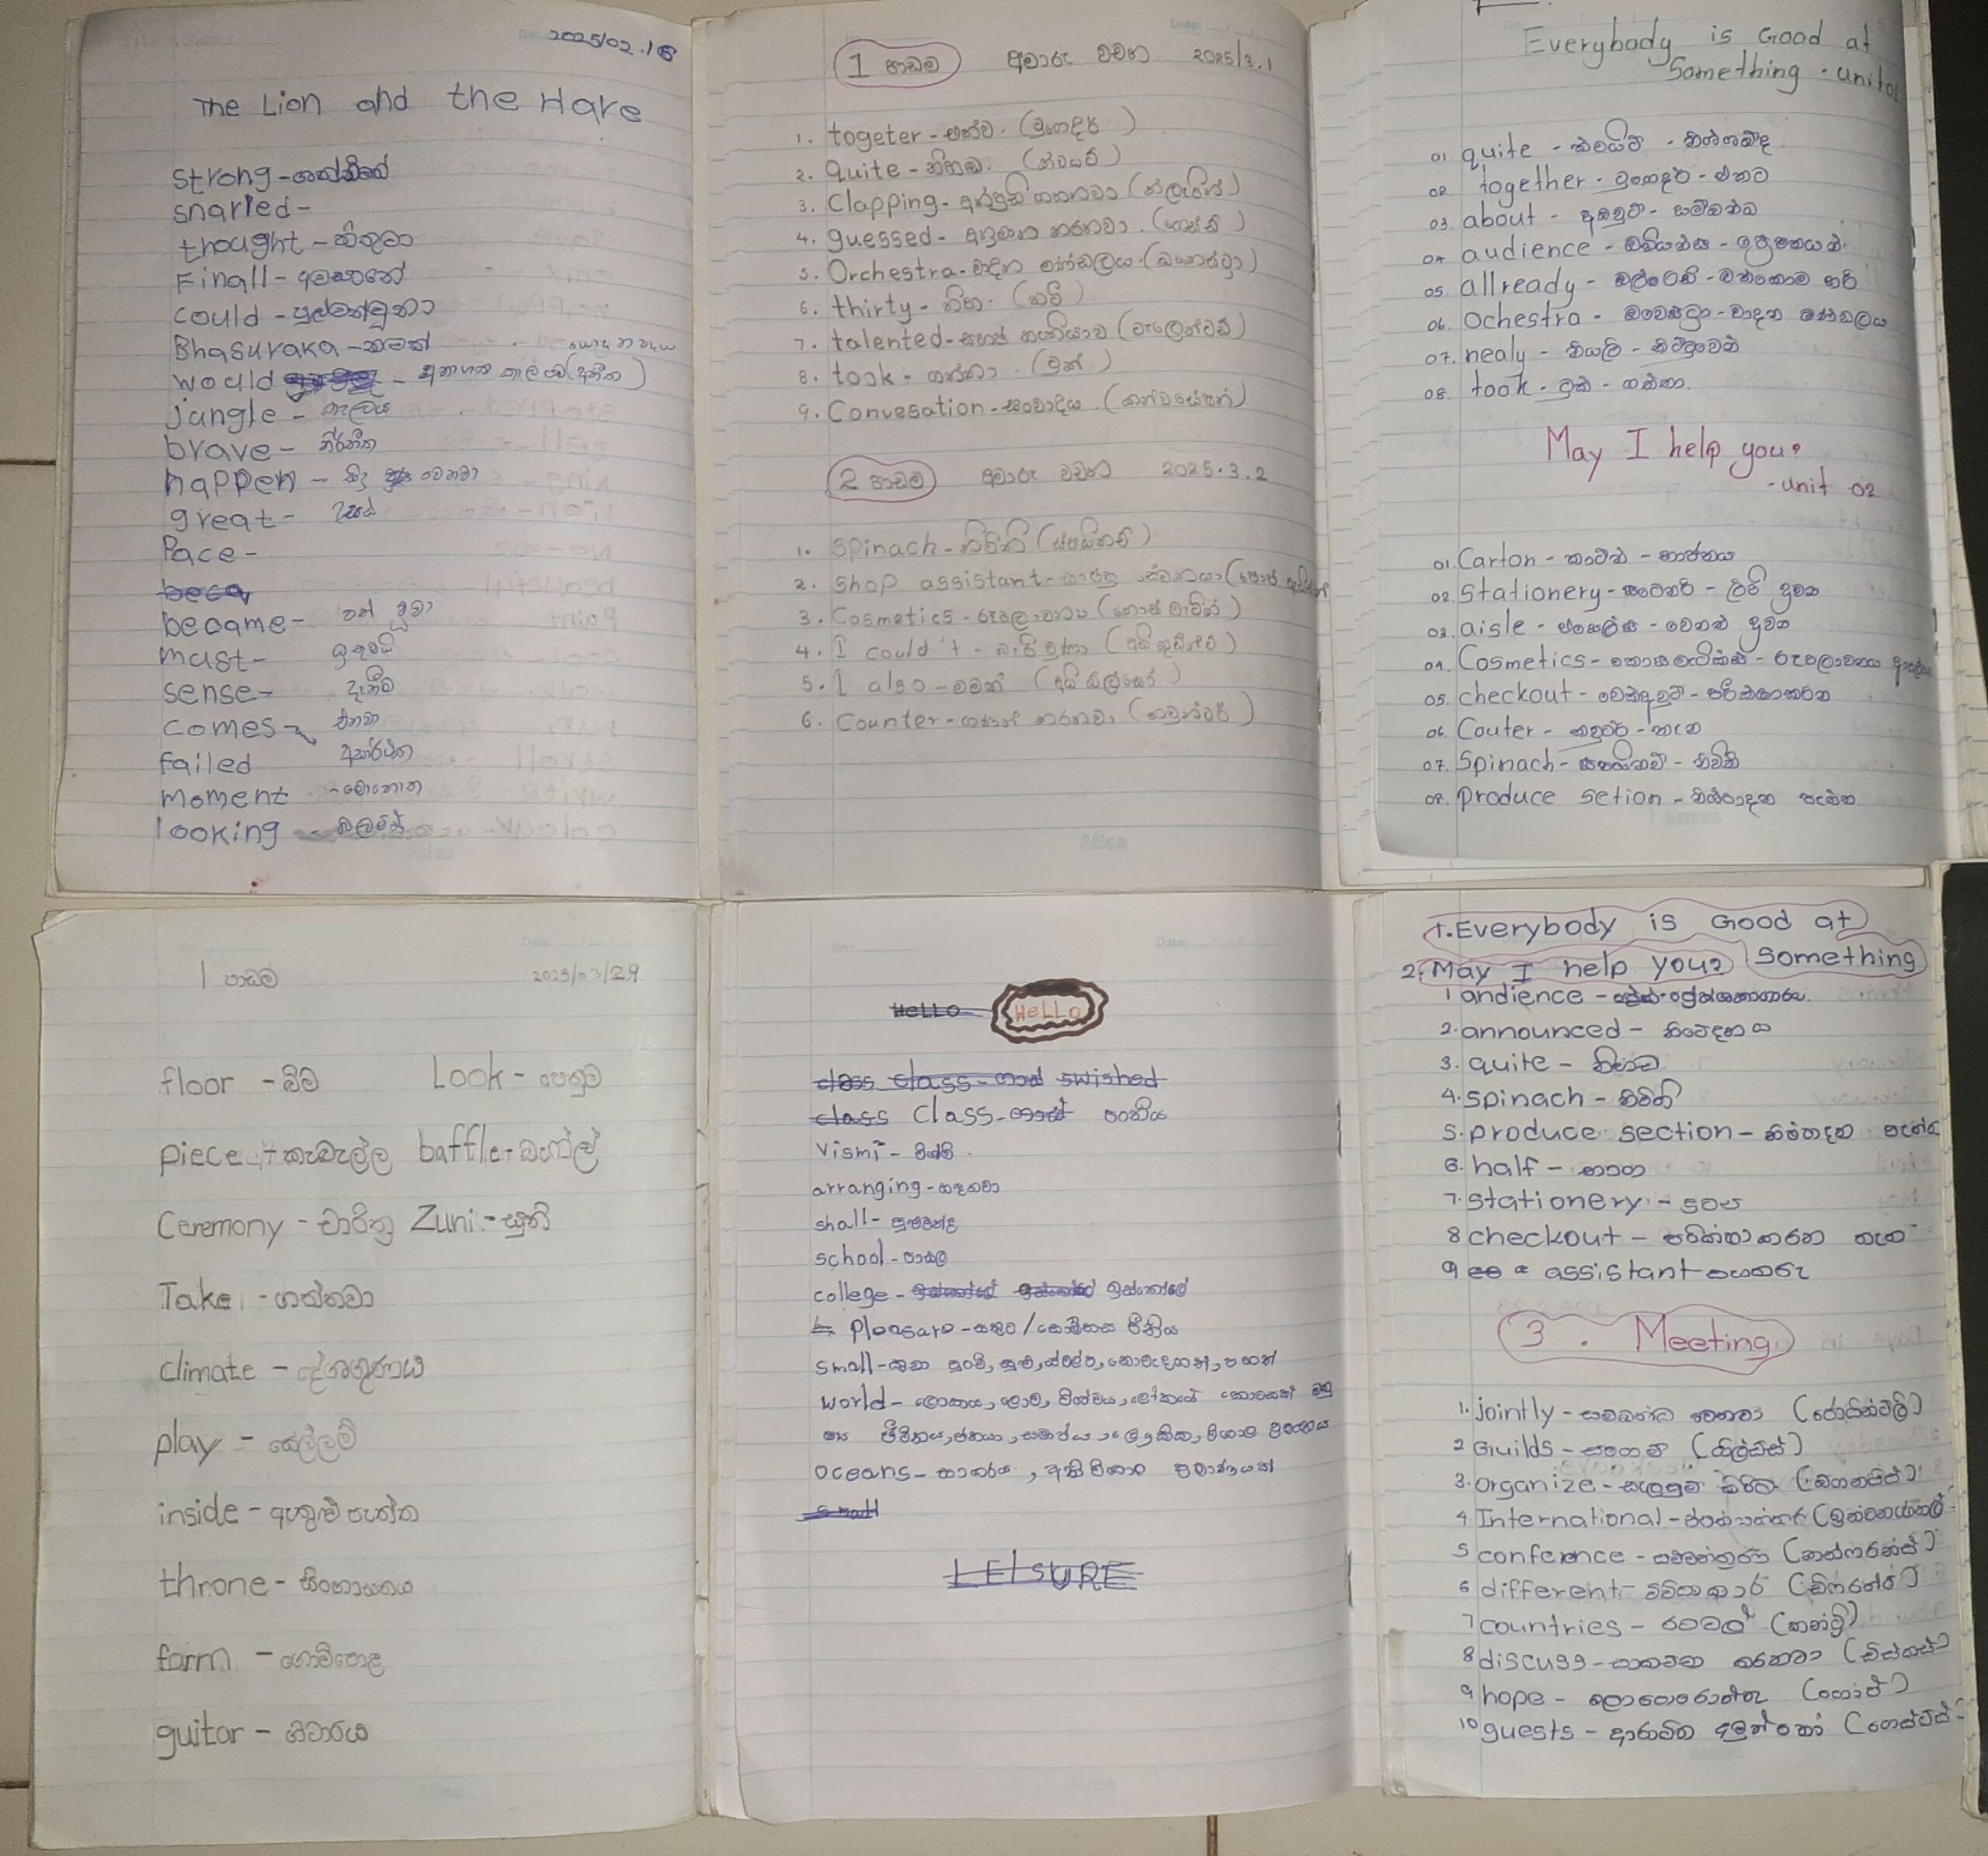 2025/02.18
The Lion and the Hare
strong-
snarled-
thought - හිතුවා
Finall - අවසානේ
could - පුලුවන්වුනා
Bhasuraka - නමක්
would - අනාගත කාල (අතීත)
jungle - කැලය
brave - නිර්භීත
happen - සිදු වෙනවා
great - උසස්
Pace -
became - පත් වූවා
must - ඉතාමයි
sense - දැනීම
comes - එනවා
failed අසාර්ථක
moment - මොහොත
looking - බලමින්
1 පාඩම අමාරු වචන 2025/3.1
1. togeter - එක්ව. (ටුගෙදර්)
2. Quite - නිහඬ. (ක්වයට්)
3. Clapping - අත්පුඩි ගහනවා (ක්ලැපින්)
4. guessed - අනුමාන කරනවා. (ගෙස්ඩ්)
5. Orchestra - වාදන මණ්ඩලය. (ඕකෙස්ට්‍රා)
6. thirty - තිහ. (තර්ටි)
7. talented - සහජ හැකියාව (ටැලෙන්ටඩ්)
8. took - ගත්තා. (ටුක්)
9. Convesation - සංවාදය. (කන්වසේෂන්)
2 පාඩම අමාරු වචන 2025.3.2
1. Spinach - නිවිති (ස්පයිනච්)
2. Shop assistant - සාප්පු සේවකයා (ෂොප්
3. Cosmetics - රූපලාවන්‍ය (කොස්මැටික්)
4. I could't - බැරි වුණා (අයි කුඩ්න්ට්)
5. I also - මමත් (අයි ඕල්සෝ)
6. counter - ගණන් කරනවා (කවුන්ටර්)
Everybody is Good at
Something - unit 01
01. quite - ක්වයිට් - නිශ්ශබ්ද
02. together - ටුගෙදර් - එකට
03. about - අබවුට් - සම්බන්ධ
04. audience - ඕඩියන්ස් - ප්‍රේක්ෂකයන්
05. allready - ඕල්රෙඩි - ඔක්කොම හරි
06. Ochestra - ඕකෙස්ට්‍රා - වාදන මණ්ඩලය
07. nealy - නියලි - කිට්ටුවෙන්
08. took - ටුක් - ගත්තා.
May I help you?
-unit 02
01. Carton - කාටන් - භාජනය
02. Stationery - ස්ටේෂනරි - ලිපි ද්‍රව්‍ය
03. aisle -
04. Cosmetics - කොස්මැටික්ස් - රූපලාවන්‍ය
05. checkout - චෙක්අවුට් - පරීක්ෂාකරන
06. Couter - කවුටර් - තැන
07. Spinach - ස්පයිනච් - නිවිති
08. produce setion - නිෂ්පාදන පැත්ත
1 පාඩම 2025/03/29
floor - බිම Look - පෙනුම
piece - කැබැල්ල baffle - බැෆ්ල්
Ceremony - චාරිත්‍ර Zuni - සුනි
Take - ගන්නවා
climate - දේශගුණය
play - සෙල්ලම්
inside - ඇතුළු පැත්ත
throne - සිංහාසනය
farm - ගොවිපොළ
guitar - ගිටාරය
HeLLO HeLLO
class class - swished
class Class - පංතිය
Vismi - විශ්මි
arranging - හදනවා
shall - පුළුවන්ද
school - පාසල
college - ඉස්කෝලේ
Pleasare - සතුට/සොම්නස ප්‍රීතිය
small - කුඩා පුංචි, සුළු, ස්වල්ප, නොවැදගත්, පහත්
world - ලොකය, ලොව, විශ්වය, ලෝකයේ කොටසක්
ජීවිතය, ජනයා, සමාජය, ලෞකික, විශාල ප්‍රමාණය
oceans - සාගරය, අති විශාල ප්‍රමාණයක්
small
LEISURE
1. Everybody is Good at
2. May I help you? Something
1 andience - ප්‍රේක්ශකාගාරය.
2. announced - නිවේදනය
3. quite - නිහඬ
4. spinach - නිවිති
5. produce section - නිෂ්පාදන පැත්ත
6. half - භාගය
7. stationery -
8 checkout - පරික්ෂා කරන තැන
9 assistant සහකරු
3. Meeting
1. jointly - සම්බන්ධ වෙනවා (ජොයින්ට්ලි)
2 Guilds - සංගම් (ගිල්ඩ්ස්)
3. organize - සැලසුම් කිරීම (ඕගනයිස්)
4 International - ජාත්‍යන්තර (ඉන්ටනැශනල්
5 conference - සම්මන්ත්‍රණ (කන්ෆරන්ස්)
6 different - විවිධාකාර (ඩිෆරන්ට්)
7 countries - රටවල් (කන්ට්‍රි)
8 discuss - සාකච්ඡා කරනවා (ඩිස්කස්)
9 hope - බලාපොරොත්තු (හෝප්)
10 guests - ආරාධිත අමුත්තෝ (ගෙස්ට්ස්